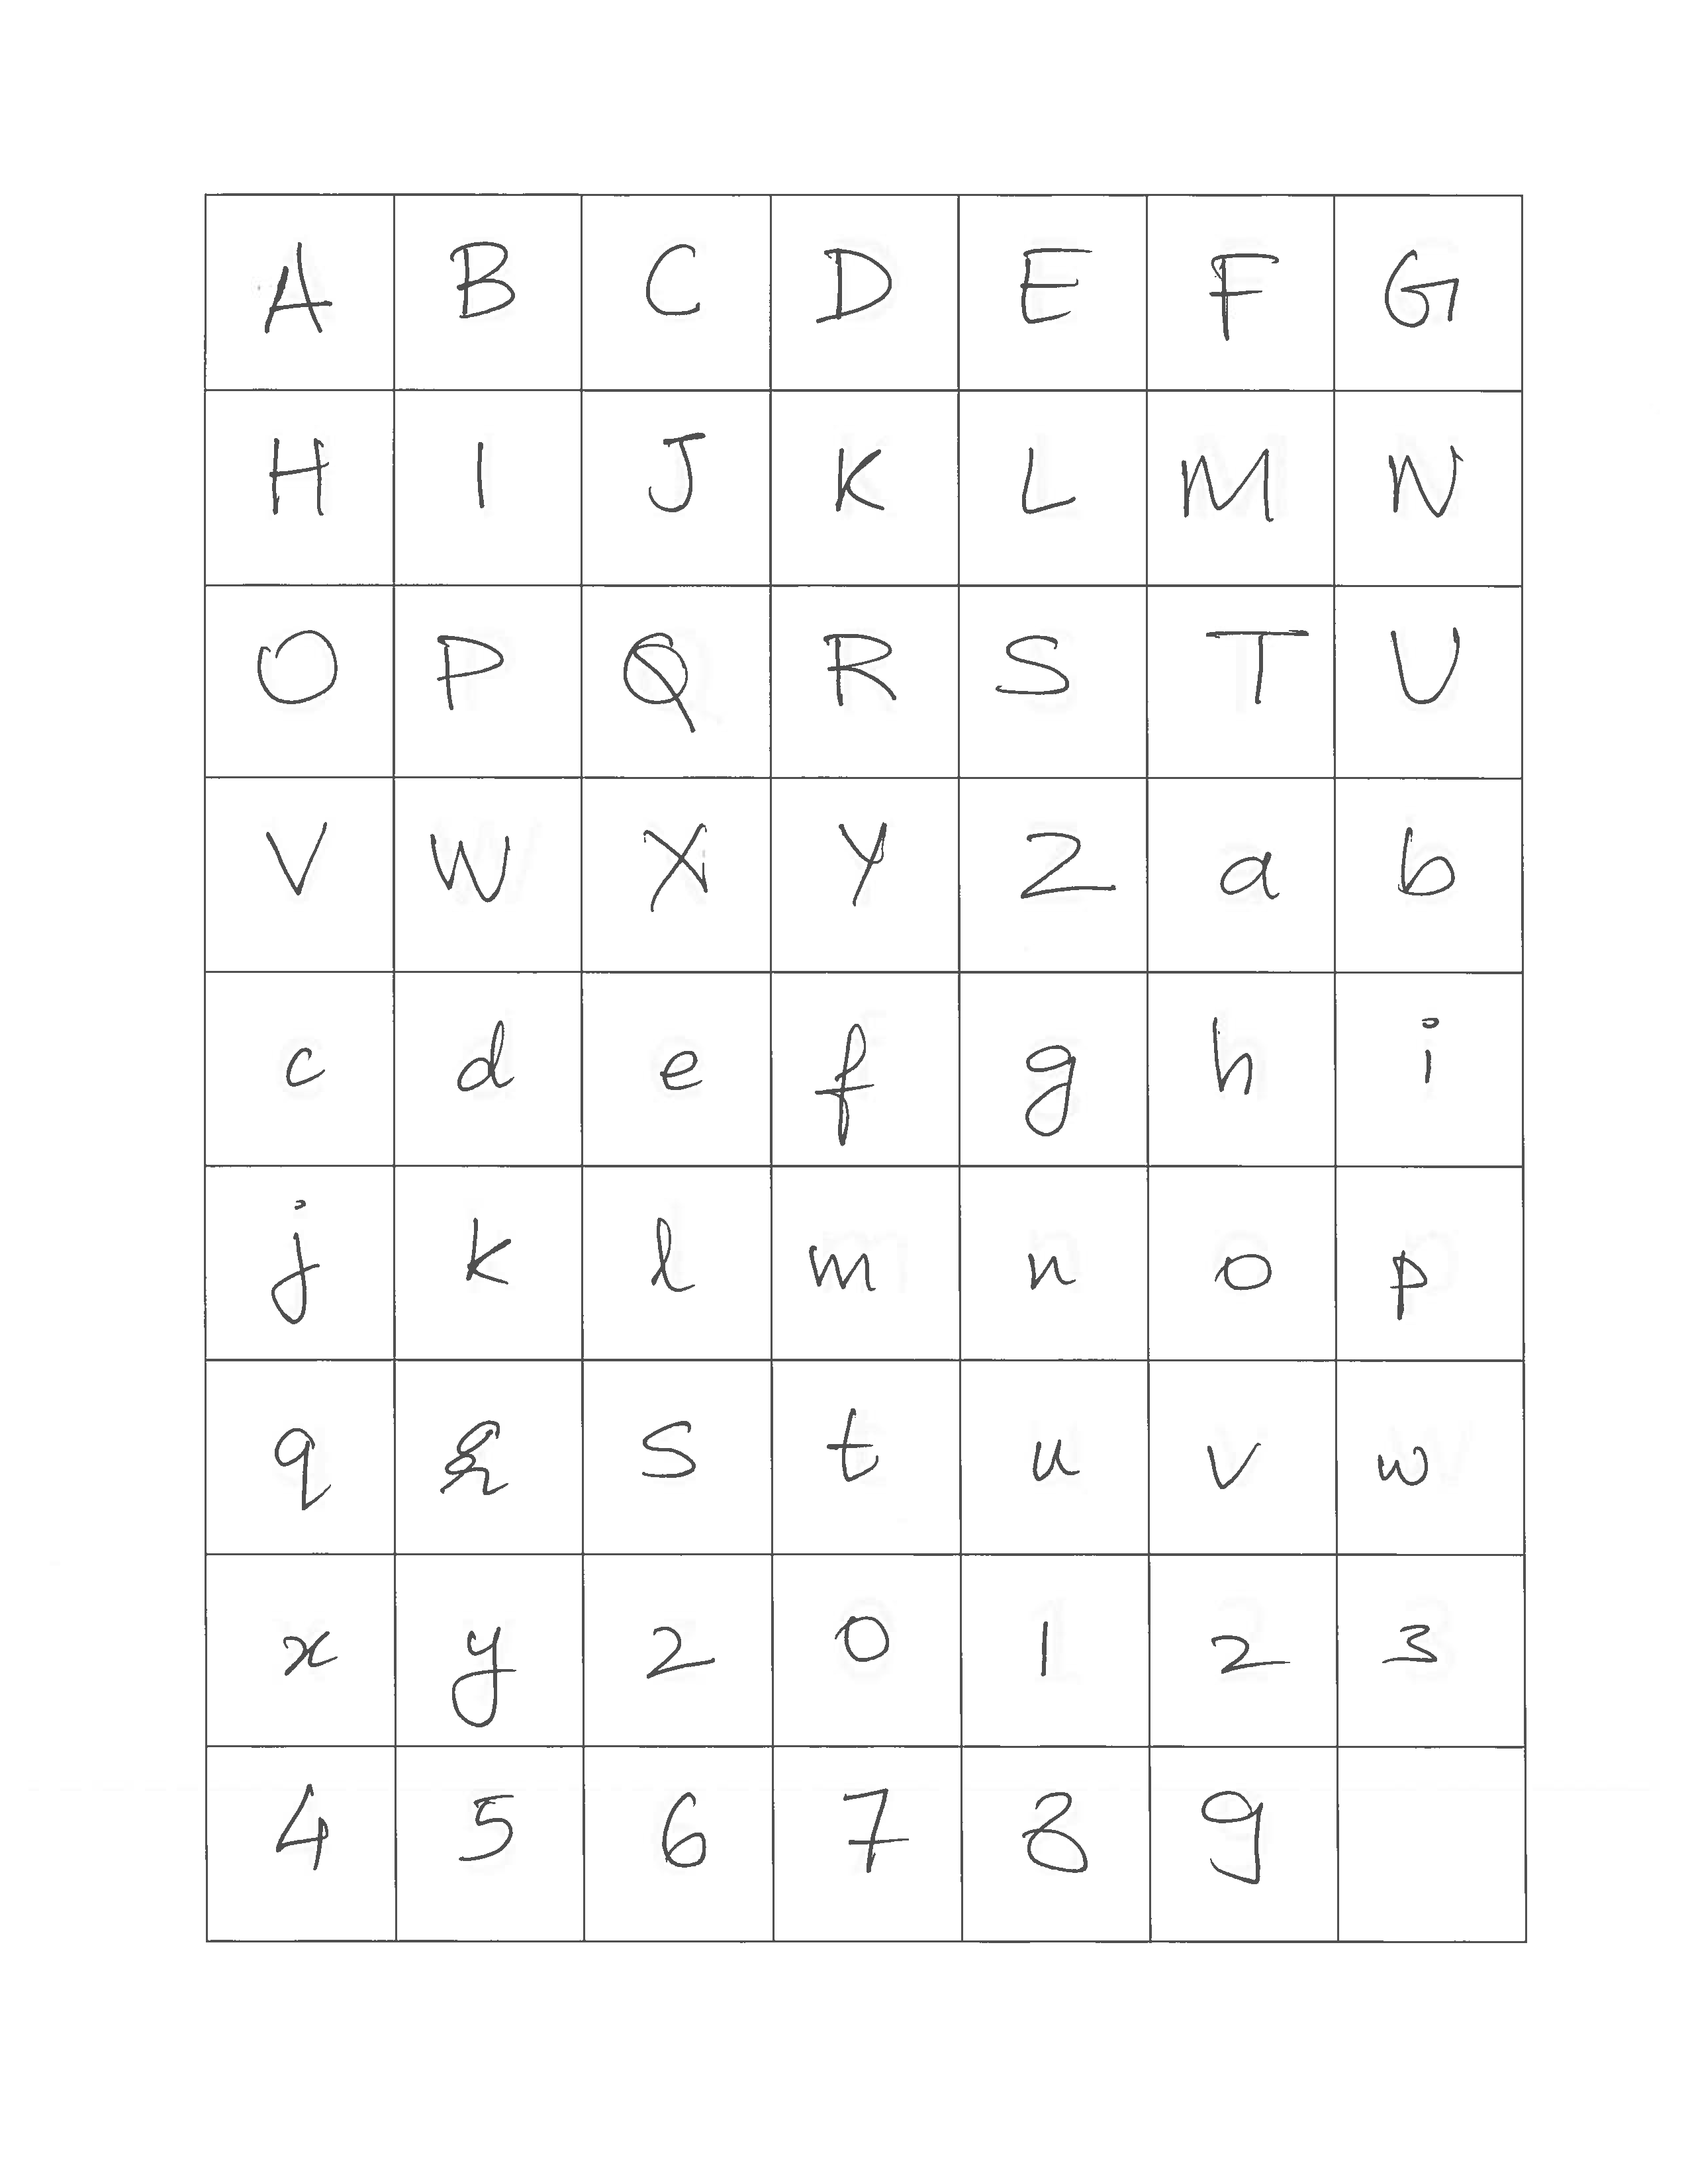 A B C D E F G
H I J K L M N
O P Q R S T U
V W X Y Z a b
c d e f g h i
j k l m n o p
q r s t u v w
x y z 0 1 2 3
4 5 6 7 8 9